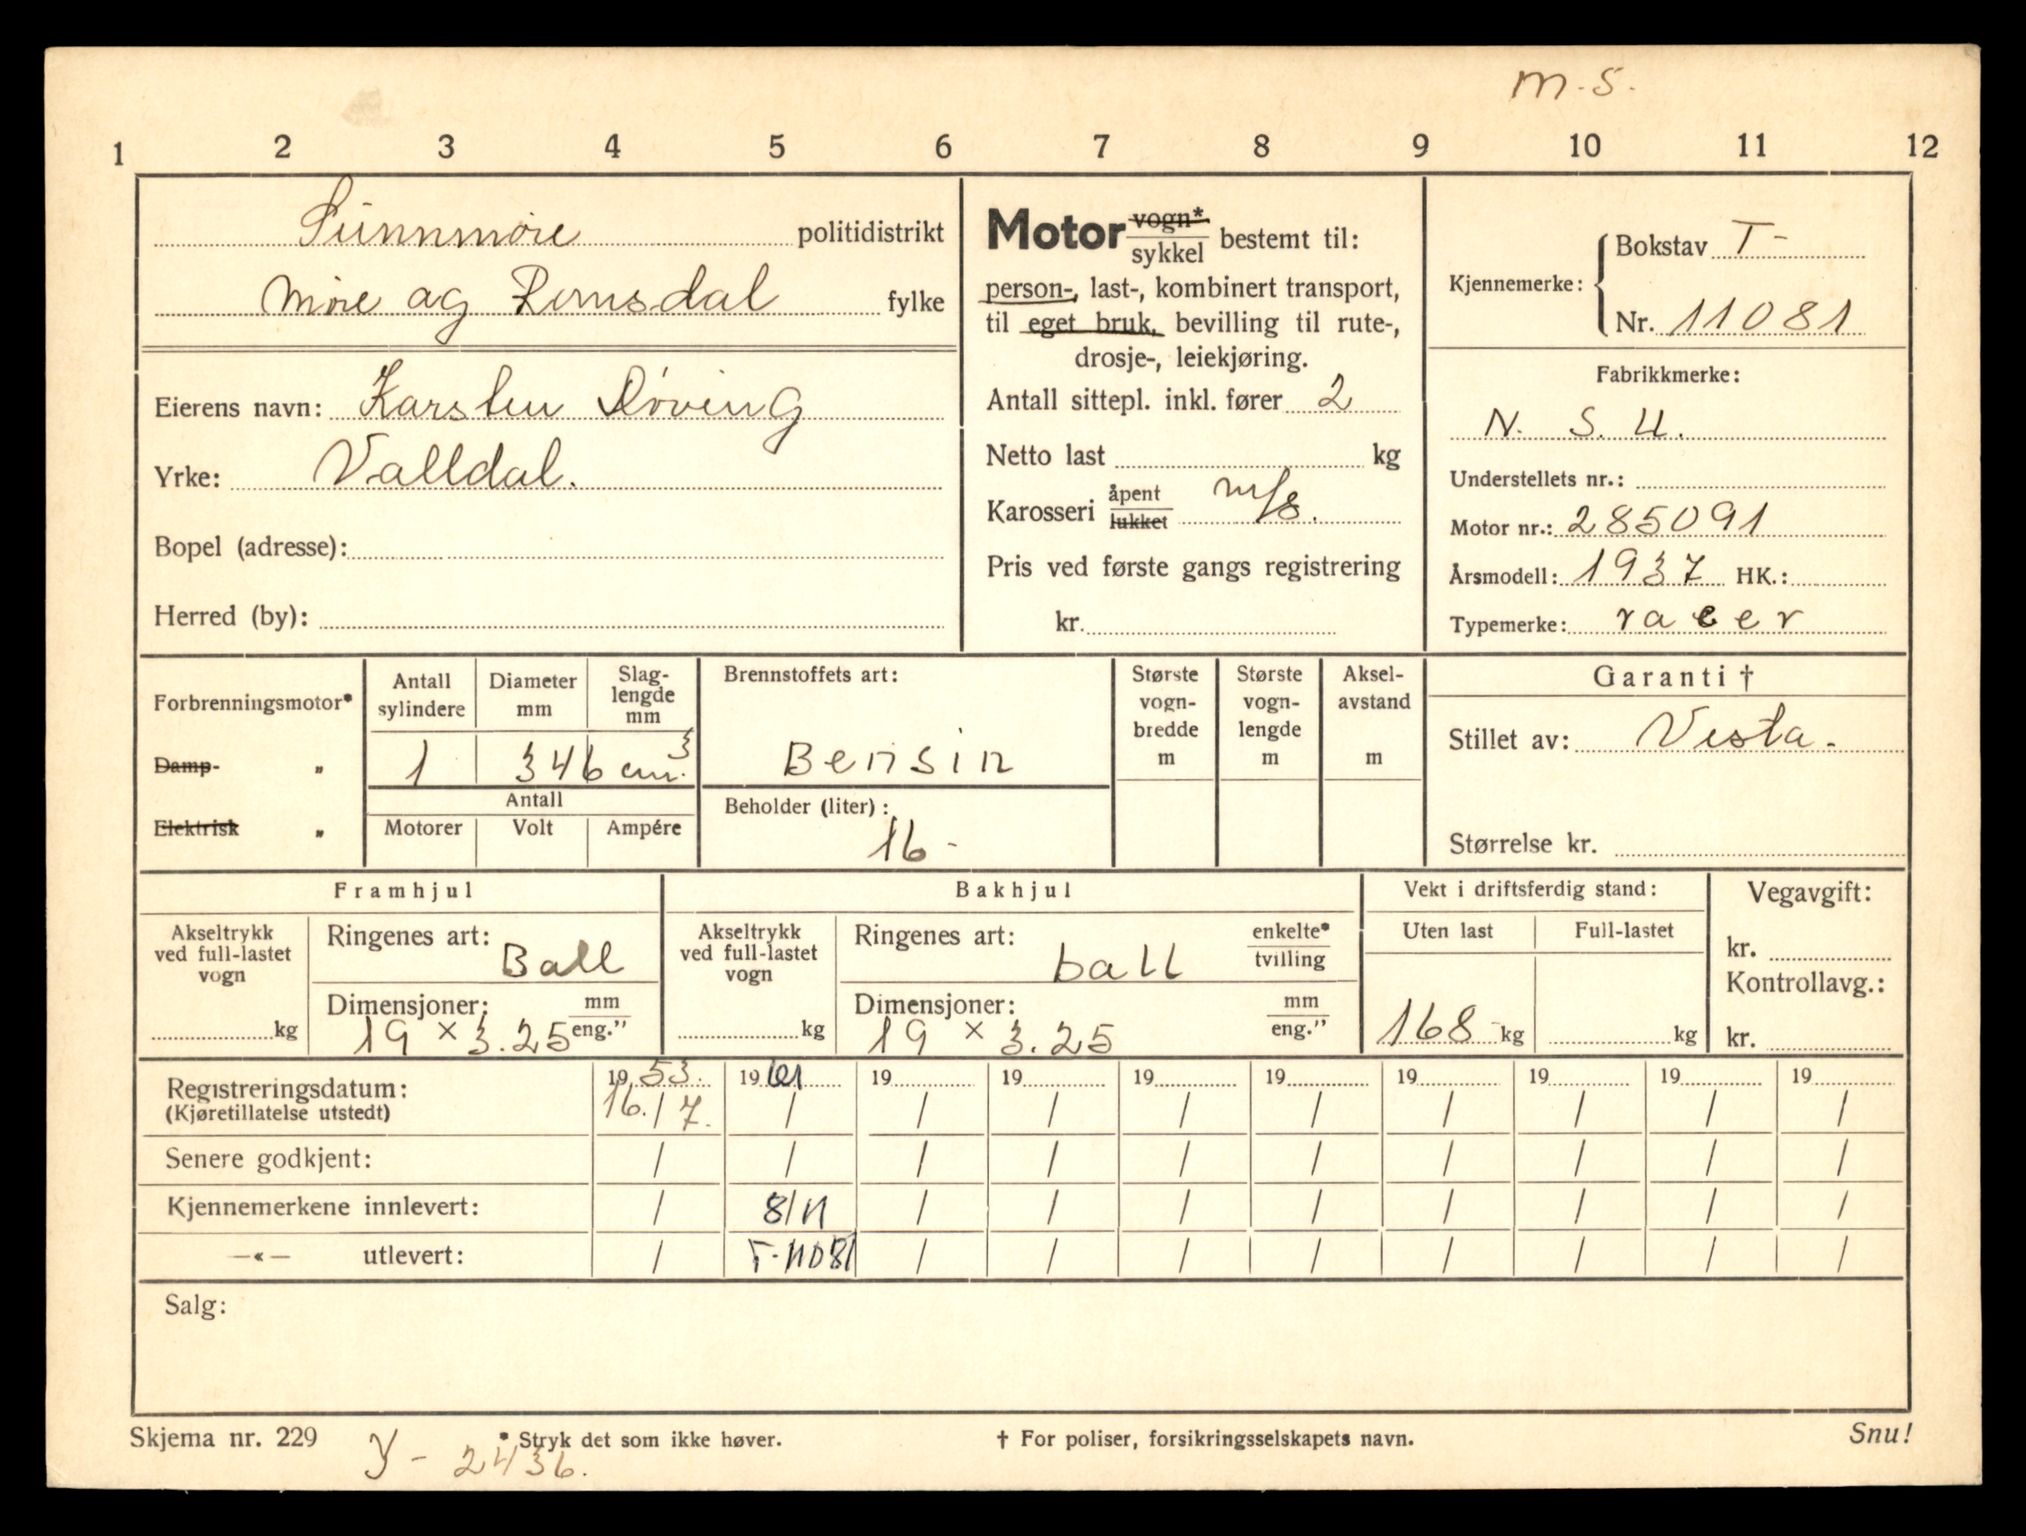 m.s.
1 2 3 4 5 6 7 8 9 10 11 12
Sunnmøre politidistrikt
Møre og Romsdal fylke
Eierens navn: Karsten Døving
Yrke: Valldal.
Bopel (adresse):
Herred (by):
Motor vogn* / sykkel bestemt til:
person-, last-, kombinert transport,
til eget bruk, bevilling til rute-,
drosje-, leiekjøring.
Antall sittepl. inkl. fører 2
Netto last kg
Karosseri åpent / lukket m/s.
Pris ved første gangs registrering
kr.
Kjennemerke: Bokstav T-
Nr. 11081
Fabrikkmerke:
N. S. U.
Understellets nr.:
Motor nr.: 285091
Årsmodell: 1937 HK.:
Typemerke: racer
Forbrenningsmotor*
Damp- „
Elektrisk „
Antall sylindere
1
Diameter mm
Slaglengde mm
346 cm.3
Antall
Motorer Volt Ampére
Brennstoffets art:
Bensin
Beholder (liter):
16-
Største vognbredde m
Største vognlengde m
Akselavstand m
Garanti †
Stillet av: Vesta.
Størrelse kr.
Framhjul
Akseltrykk ved full-lastet vogn
kg
Ringenes art: Ball
Dimensjoner: mm / eng."
19 x 3.25
Bakhjul
Akseltrykk ved full-lastet vogn
kg
Ringenes art: ball enkelte* / tvilling
Dimensjoner: mm / eng."
19 x 3.25
Vekt i driftsferdig stand:
Uten last Full-lastet
168 kg kg
Vegavgift:
kr.
Kontrollavg.:
kr.
Registreringsdatum: 1953. 1961 19 19 19 19 19 19 19 19
(Kjøretillatelse utstedt) 16./7. / / / / / / / / /
Senere godkjent: / / / / / / / / / /
Kjennemerkene innlevert: / 8/11 / / / / / / / /
—«— utlevert: / T-11081 / / / / / / / /
Salg:
Skjema nr. 229 * Stryk det som ikke høver. † For poliser, forsikringsselskapets navn. Snu!
2436.